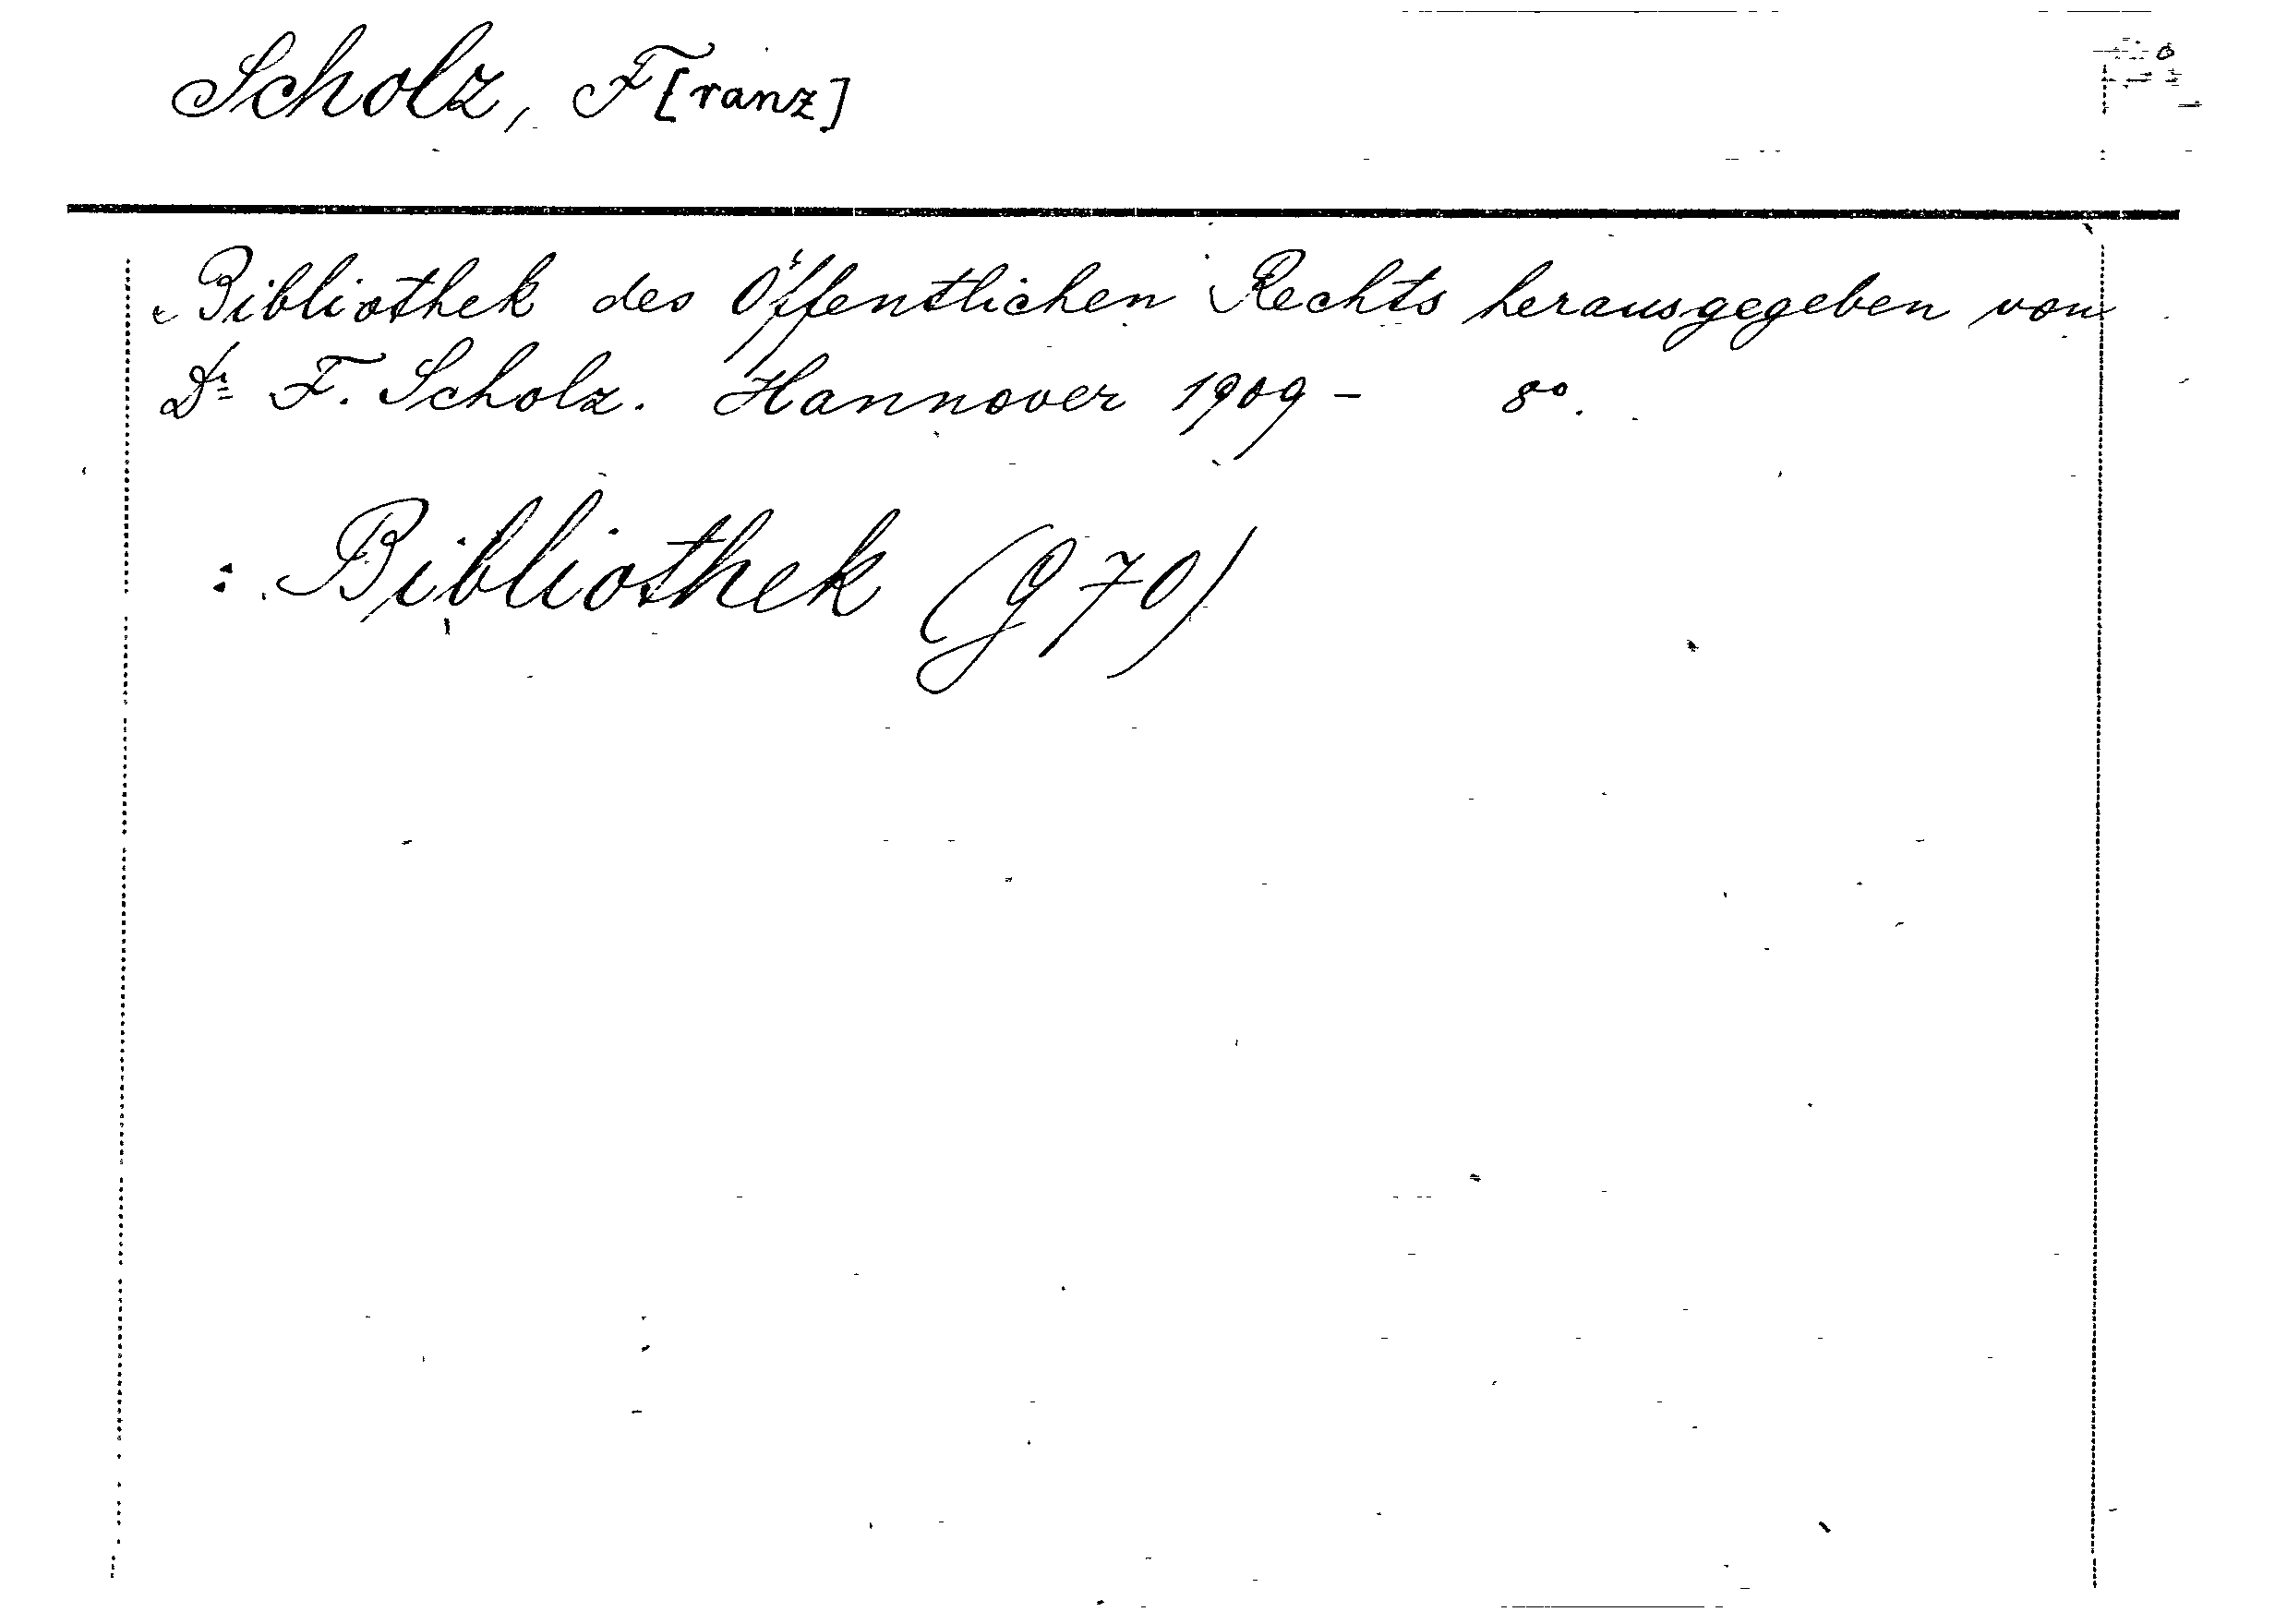 Scholz, F[ranz]
Bibliothek des Öffentlichen Rechts herausgegeben von
Dr F. Scholz. Hannover 1909 - 8º.
: Bibliothek (G 70)